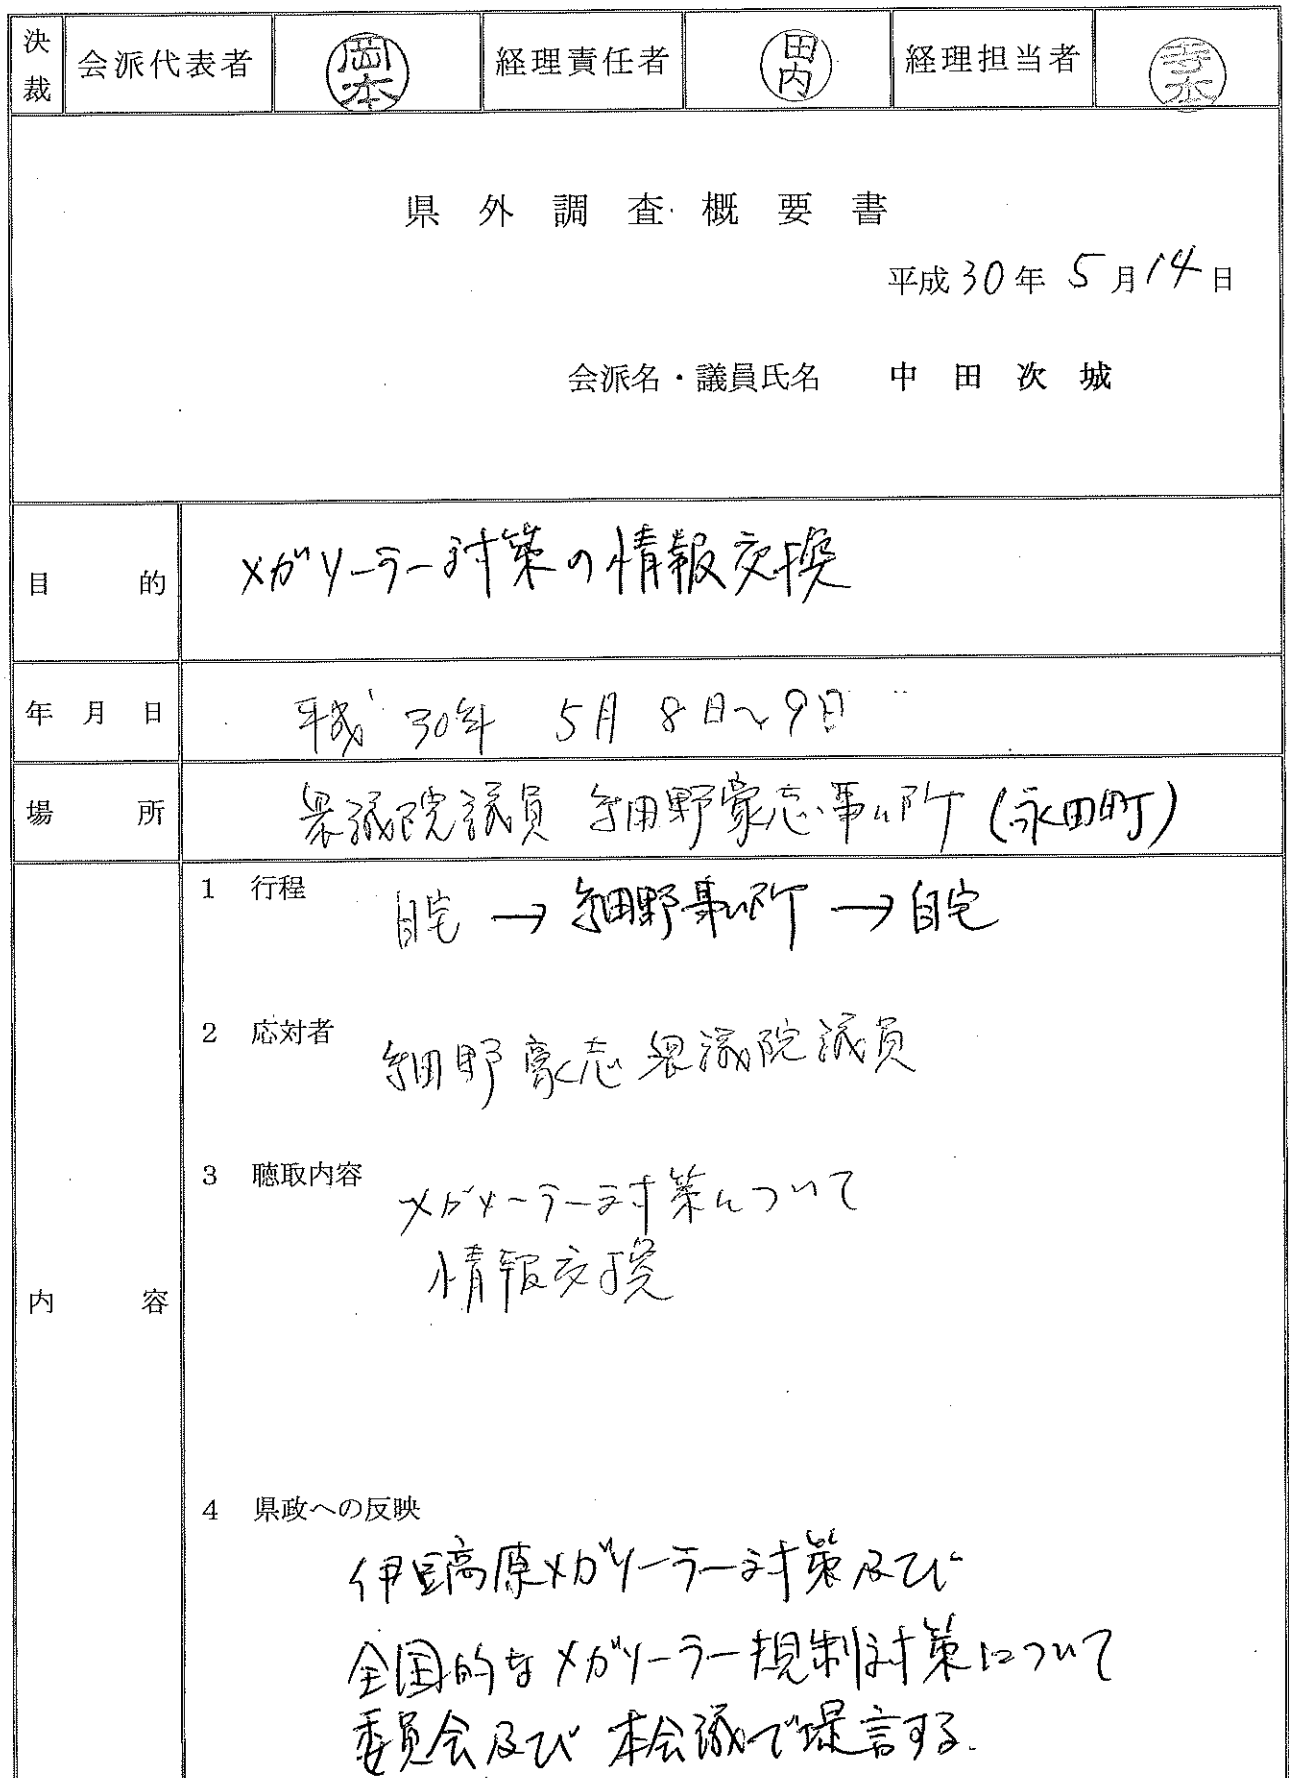 決裁 会派代表者 岡本 経理責任者 田内 経理担当者
県外調査概要書
平成30年5月14日
会派名・議員氏名 中田次城
目的 メガソーラー対策の情報交換
年月日 平成30年 5月8日~9日
場所 衆議院議員 細野豪志事ム所(永田町)
内容
1 行程 自宅→細野事ム所→自宅
2 応対者 細野豪志衆議院議員
3 聴取内容 メガソーラー対策について
情報交換
4 県政への反映
伊豆高原メガソーラー対策及び
全国的なメガソーラー規制対策について
委員会及び本会議で提言する.